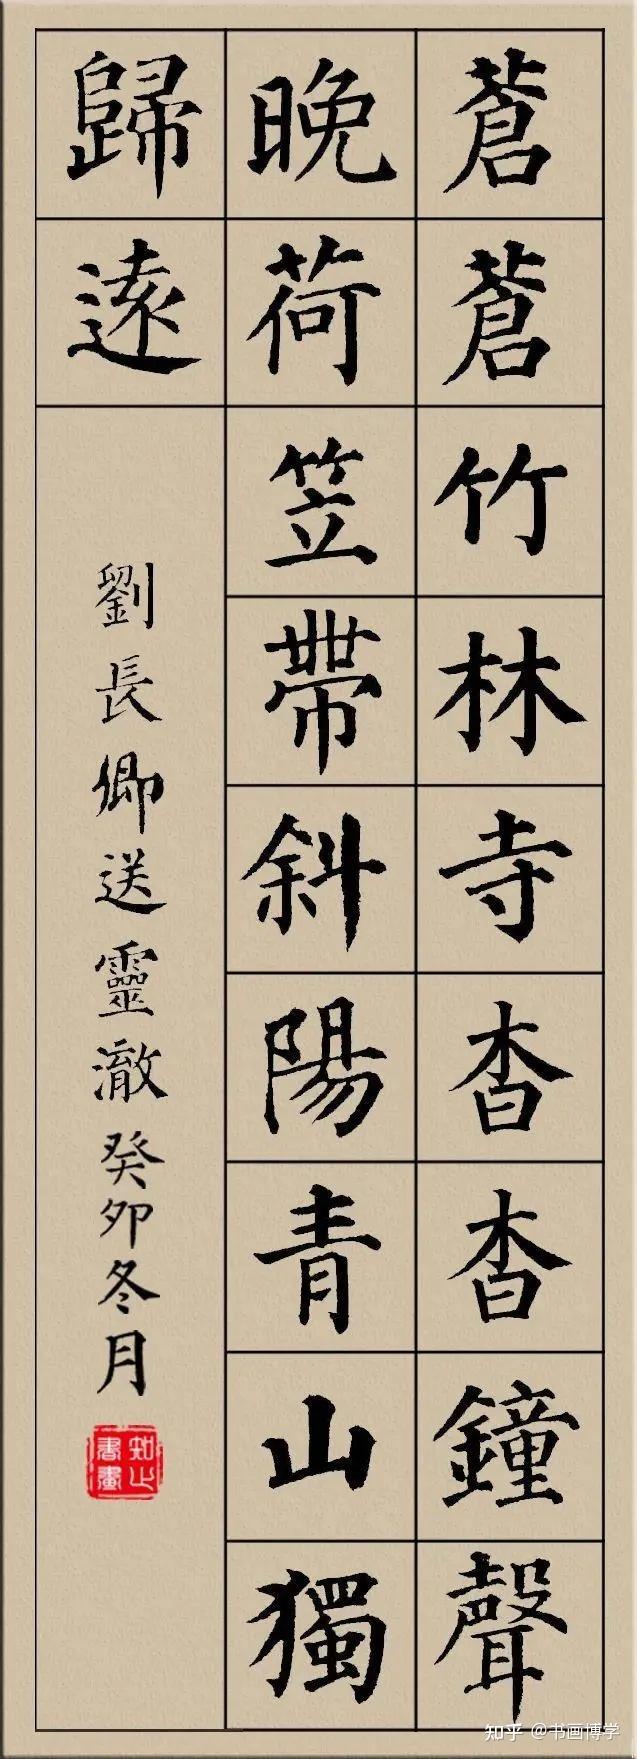 蒼蒼竹林寺杳杳鐘聲
晚荷笠帶斜陽青山獨
歸遠
劉長卿送靈澈癸卯冬月
知止書畫
知乎 @书画博学